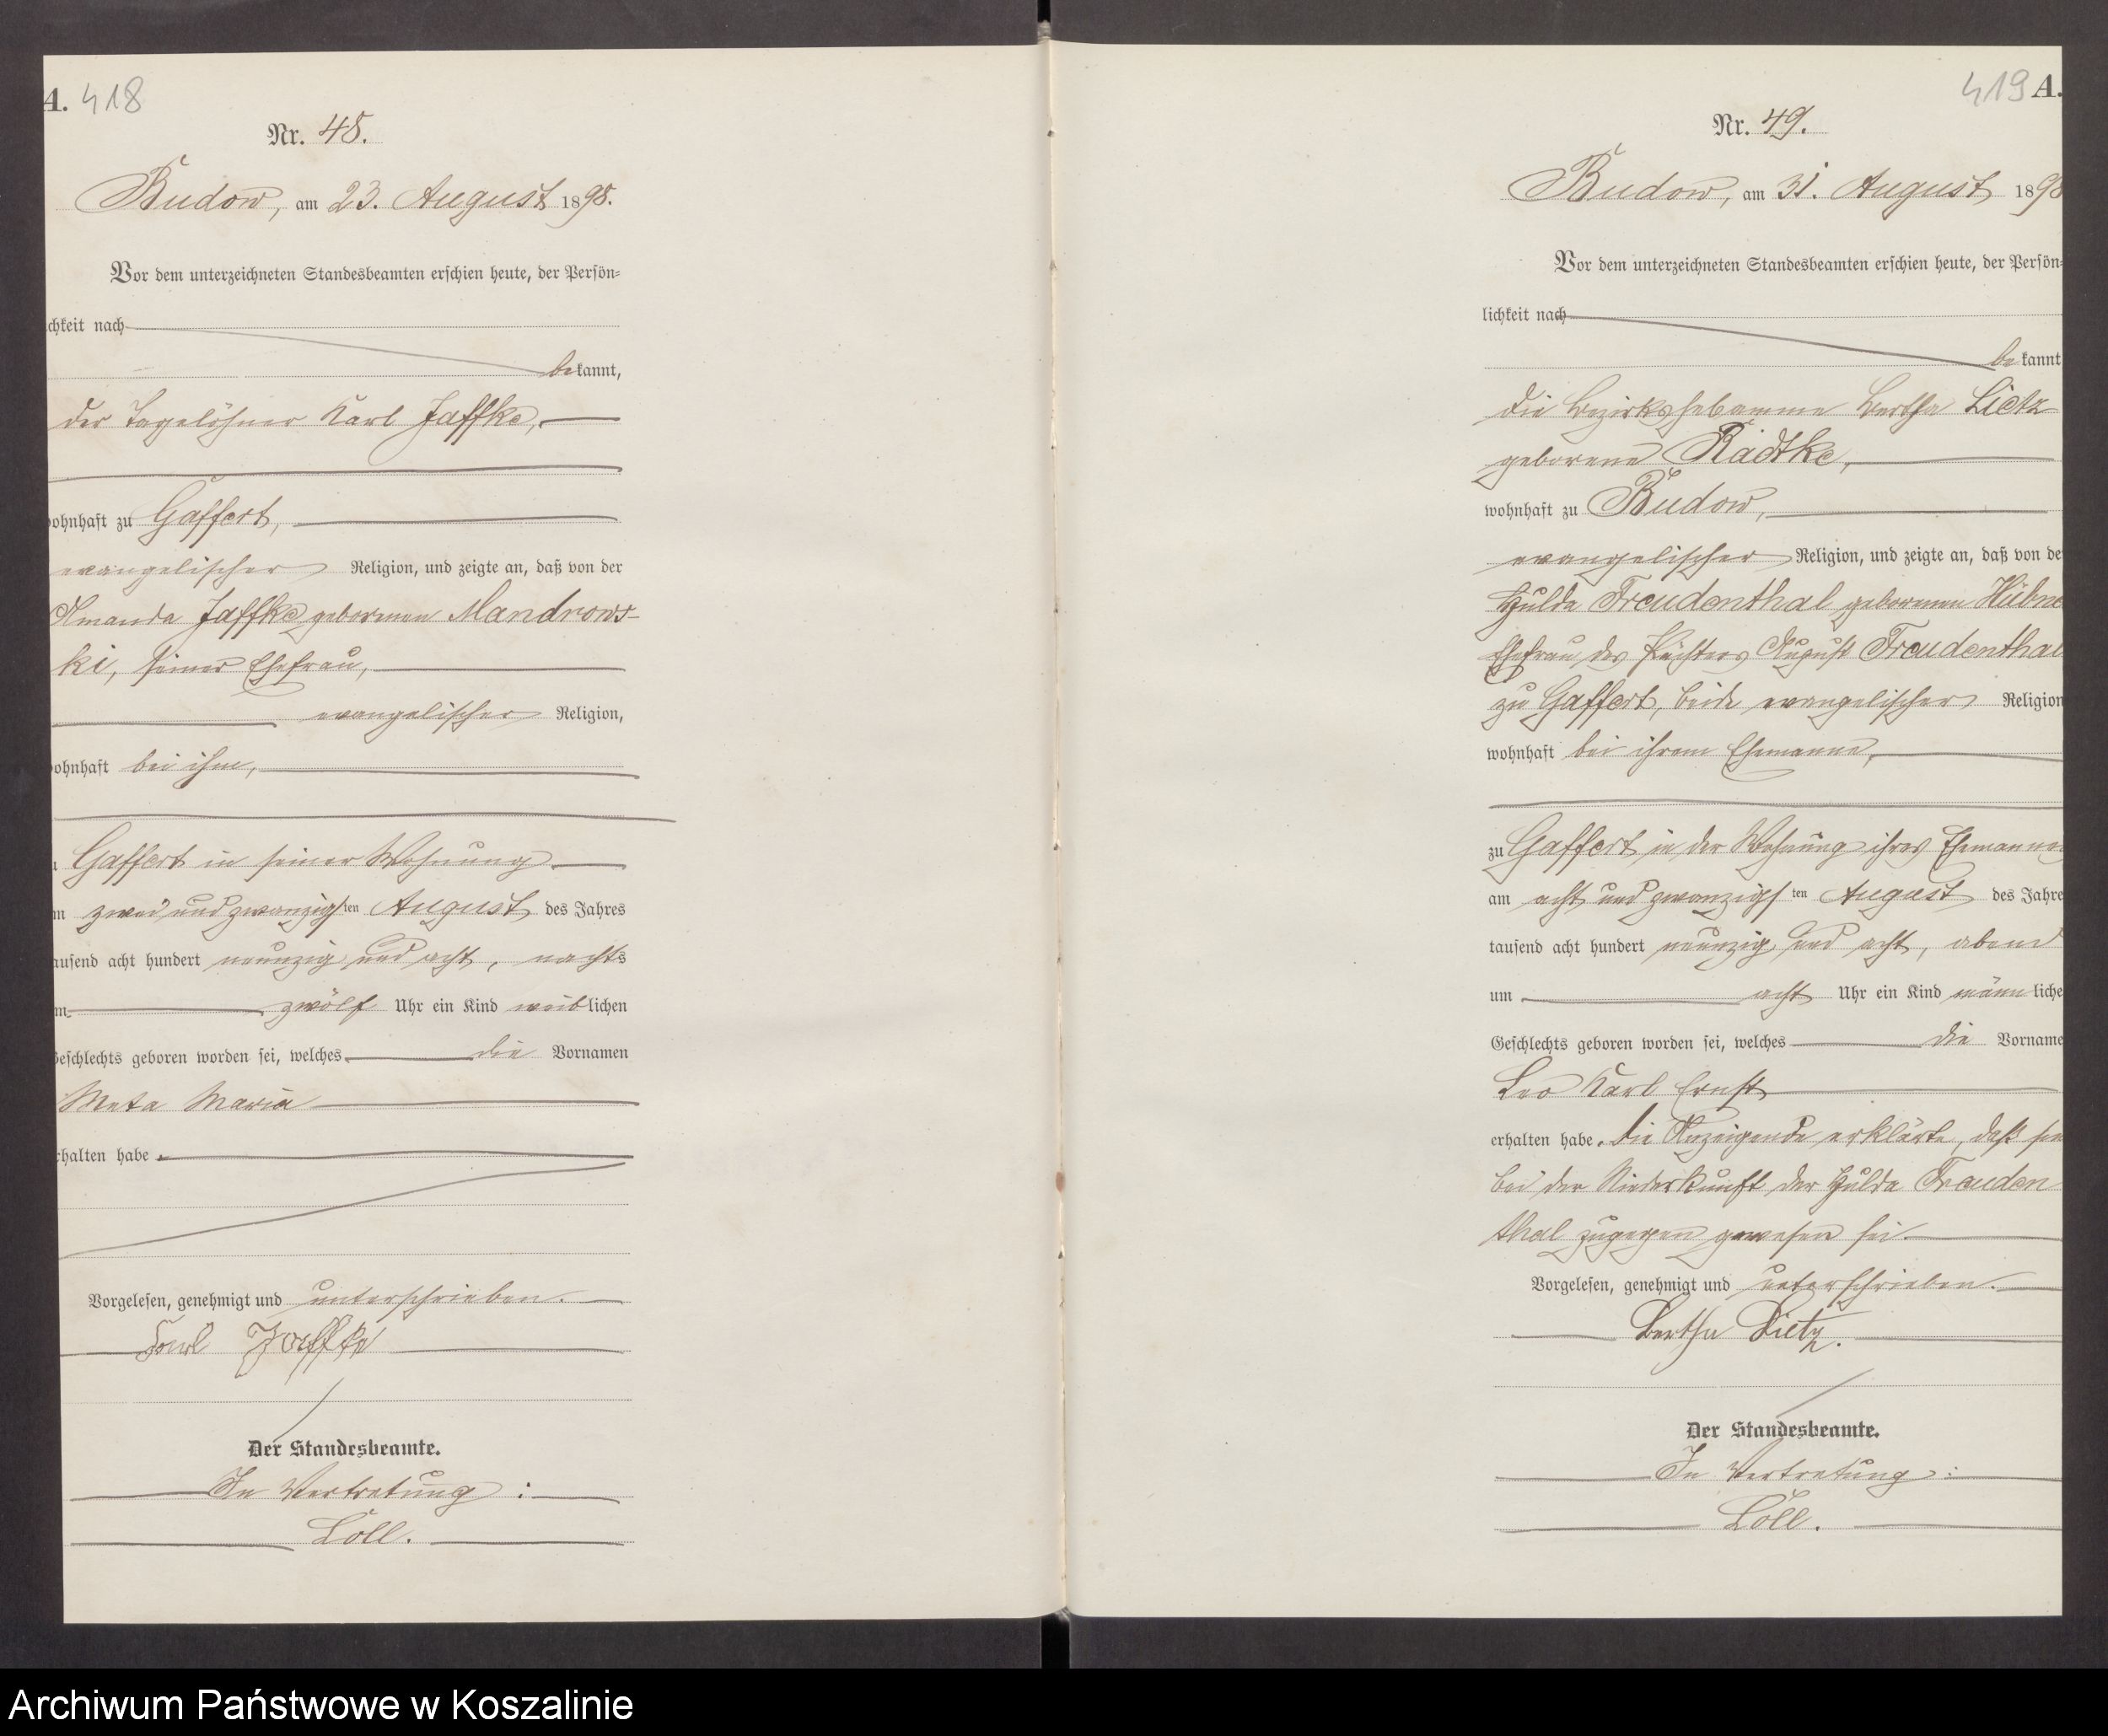 A. 418
Nr. 48.
Budow, am 23. August 1898.
Vor dem unterzeichneten Standesbeamten erschien heute, der Persön-
chkeit nach
bekannt,
der Tagelöhner Karl Jaffke,
ohnhaft zu Gaffert,
evangelischer Religion, und zeigte an, daß von der
Amanda Jaffke geborenen Mandrows-
ki, seiner Ehefrau,
evangelischer Religion,
ohnhaft bei ihm,
Gaffert in seiner Wohnung
zwei und zwanzigsten August des Jahres
ausend acht hundert neunzig und acht, nachts
m zwölf Uhr ein Kind weiblichen
Geschlechts geboren worden sei, welches die Vornamen
Meta Maria
rhalten habe.
Vorgelesen, genehmigt und unterschrieben.
Karl Jaffke
Der Standesbeamte.
In Vertretung:
Löll.
419 A.
Nr. 49.
Budow, am 31. August 1898
Vor dem unterzeichneten Standesbeamten erschien heute, der Persön-
lichkeit nach
bekannt
die Bezirkshebamme Bertha Lietz
geborene Rädtke,
wohnhaft zu Budow,
evangelischer Religion, und zeigte an, daß von de
Hulda Freudenthal geborenen Hübne
Ehefrau des Pächters August Freudenthal
zu Gaffert, beide evangelischer Religion
wohnhaft bei ihrem Ehemanne,
zu Gaffert, in der Wohnung ihres Ehemannes
am acht und zwanzigsten August des Jahre
tausend acht hundert neunzig und acht, abend
um acht Uhr ein Kind männliche
Geschlechts geboren worden sei, welches die Vorname
Leo Karl Ernst
erhalten habe. Die Anzeigende erklärte, daß sie
bei der Niederkunft der Hulda Freuden
thal zugegen gewesen sei.
Vorgelesen, genehmigt und unterschrieben.
Bertha Lietz.
Der Standesbeamte.
In Vertretung:
Löll.
Archiwum Państwowe w Koszalinie